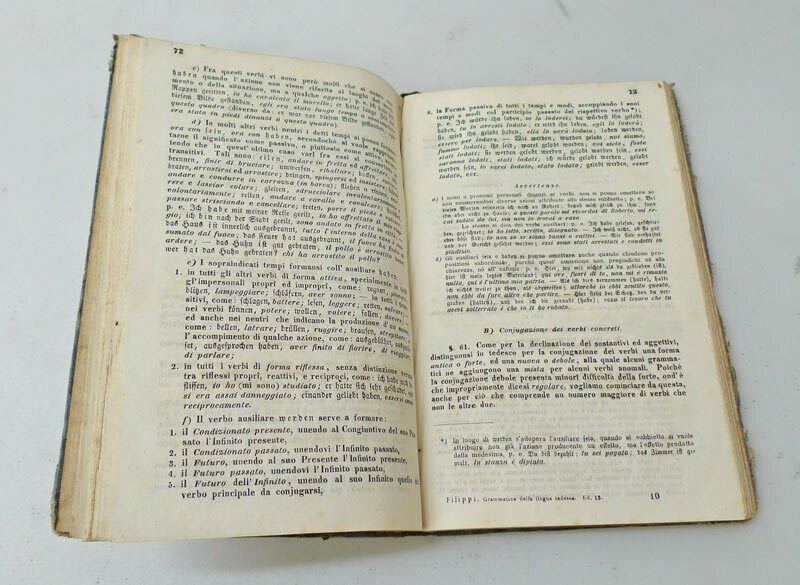 72
c) Fra questi verbi vi sono però molti che si
haben quando l'azione non viene riferita al luogo
mento o della situazione, ma a qualche oggetto; p. e. ich
Rappen geritten, io ho cavalcato il morello; er hatte
diesem Bilde gestanden, egli era stato lungo tempo
questo quadro (diverso da: er war vor diesem Bilde gestanden,
era stato in piedi dinanzi a questo quadro).
d) In molti altri verbi neutri i detti tempi si possono formare
ora con sein, ora con haben, secondochè si vuole
tarne il significato come passivo, o piuttosto come attivo,
tendo che in quest' ultimo caso varî fra essi si
transitivi. Tali sono: eilen, andare in fretta ed affrettarsi;
brennen, finir di bruciare; umwerfen, ribaltare;
braten, arrostirsi ed arrostire; dringen, spingersi ed insistere;
andare e condurre in carrozza (in barca); fließen
re e lasciar colare; gleiten, sdrucciolare
volontariamente; reiten, andare a cavallo e cavalcare;
passare strisciando e cancellare; treten, porre il piede e
p. e. Ich habe mit meiner Reise geeilt, io ho affrettato il mio
gio; ich bin nach der Stadt geeilt, sono andato in fretta in
das Haus ist innerlich ausgebrannt, tutto l'interno della casa
sumato dal fuoco; das Feuer hat ausgebrannt, il fuoco ha
ardere; — das Huhn ist gut gebraten, il pollo è arrostito
wer hat das Huhn gebraten? chi ha arrostito il pollo?
e) I sopraludicati tempi formansi coll' ausiliare haben
1. in tutti gli altri verbi di forma attiva, specialmente
gl'impersonali propri ed impropri, come: regnen,
blitzen, lampeggiare; schläfern, aver sonno; — in tutti i
sitivi, come: schlagen, battere; lesen, leggere; retten,
nei verbi können, potere; wollen, volere; sollen,
ed anche nei neutri che indicano la produzione d'un
come: bellen, latrare; brüllen, ruggire; brausen,
l' accompimento di qualche azione, come: ausgeblühet
set, ausgesprochen haben, aver finito di fiorire, di
di parlare;
2. in tutti i verbi di forma riflessa, senza distinzione
tra riflessi propri, reattivi, e reciproci, come: ich habe mich
flissen, io ho (mi sono) studiato; er hatte sich sehr geschadet,
si era assai danneggiato; einander geliebt haben, essersi
reciprocamente.
f) Il verbo ausiliare werden serve a formare:
1. il Condizionato presente, unendo al Congiuntivo del suo
sato l'Infinito presente,
2. il Condizionato passato, unendovi l'Infinito passato,
3. il Futuro, unendo al suo Presente l'Infinito presente,
4. il Futuro passato, unendovi l'Infinito passato,
5. il Futuro dell' Infinito, unendo al suo Infinito quello
verbo principale da conjugarsi,
73
6. la Forma passiva di tutti i tempi e modi, accoppiando i suoi
tempi e modi col participio passato del rispettivo verbo*);
p. e. Ich würde ihn loben, io lo loderei; du würdest ihn gelobt
haben, tu lo avresti lodato; er wird ihn loben, egli lo loderà;
sie wird ihn gelobt haben, ella lo avrà lodato; loben werden,
essere per lodare. — Wir werden gelobt, noi siamo,
fummo lodati; ihr seid, waret gelobt worden, noi siete, foste
stati lodati; sie werden gelobt werden, gelobt worden sein, essi
saranno lodati, stati lodati; ich würde gelobt werden, gelobt
worden sein, io sarei lodato, stato lodato; gelobt werden, esser
lodato, ecc.
Avvertenze.
a) I nomi o pronomi personali dinanzi ai verbi non si ponno omettere se
non enumerandosi diverse azioni attribuite allo stesso subbietto; p. e. Bei
diesen Worten erinnerte ich mich an Robert, begab mich zu ihm, fand ihn
aber nicht zu Hause, a queste parole mi ricordai di Roberto, mi re-
cai subito da lui, ma non lo trovai a casa.
Lo stesso si dica dei verbi ausiliari: p. e. Ich habe gelesen, geschrie-
ben, gezeichnet; io ho letto, scritto, disegnato. — Ich weiß nicht, ob sie gut
oder böse sind; io non so se siano buoni o cattivi. — Sie sind verhaftet
und vor Gericht geführt worden, essi sono stati arrestati e condotti in
giudizio.
b) Gli ausiliari sein e haben si ponno omettere anche quando chiudono pro-
posizione subordinata, purchè quest' ommissione non pregiudichi nè alla
chiarezza, nè all' eufonia: p. e. Hier, wo mir nichts als du geblieben (ist),
hier ist mein letztes Vaterland; qui ove, fuori di te, non mi è rimasto
nulla, qui è l'ultima mia patria. — Als ich dies vernommen (hatte), hat
ich nichts weiter zu thun, als abzureisen; allorchè io ebbi sentito questo,
non ebbi da fare altro che partire. — Hier steht der Schatz, den du ver-
graben (hattest), und den ich dir geraubt (habe); ecco il tesoro che tu
avevi sotterrato e che io ti ho rubato.
B) Conjugazione dei verbi concreti.
§. 61. Come per la declinazione dei sostantivi ed aggettivi,
distinguonsi in tedesco per la conjugazione dei verbi una forma
antica o forte, ed una nuova o debole, alla quale alcuni gramma-
tici ne aggiungono una mista per alcuni verbi anomali. Poichè
la conjugazione debole presenta minori difficoltà della forte, ond' è
che impropriamente dicesi regolare, vogliamo cominciare da questa,
anche per ciò che comprende un numero maggiore di verbi che
non le altre due.
*) In luogo di werden s'adopera l'ausiliare sein, quando al subbietto si vuole
attribuire non già l'azione producente un effetto, ma l'effetto prodotto
dalla medesima, p. e. Du bist bezahlt; tu sei pagato; das Zimmer ist ge-
malt, la stanza è dipinta.
Filippi, Grammatica della lingua tedesca. Ed. 13.
10